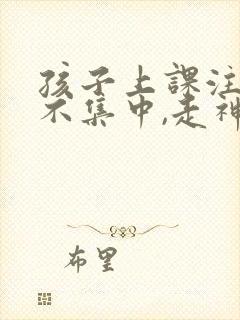 孩子上課注
不集中,走神
布里